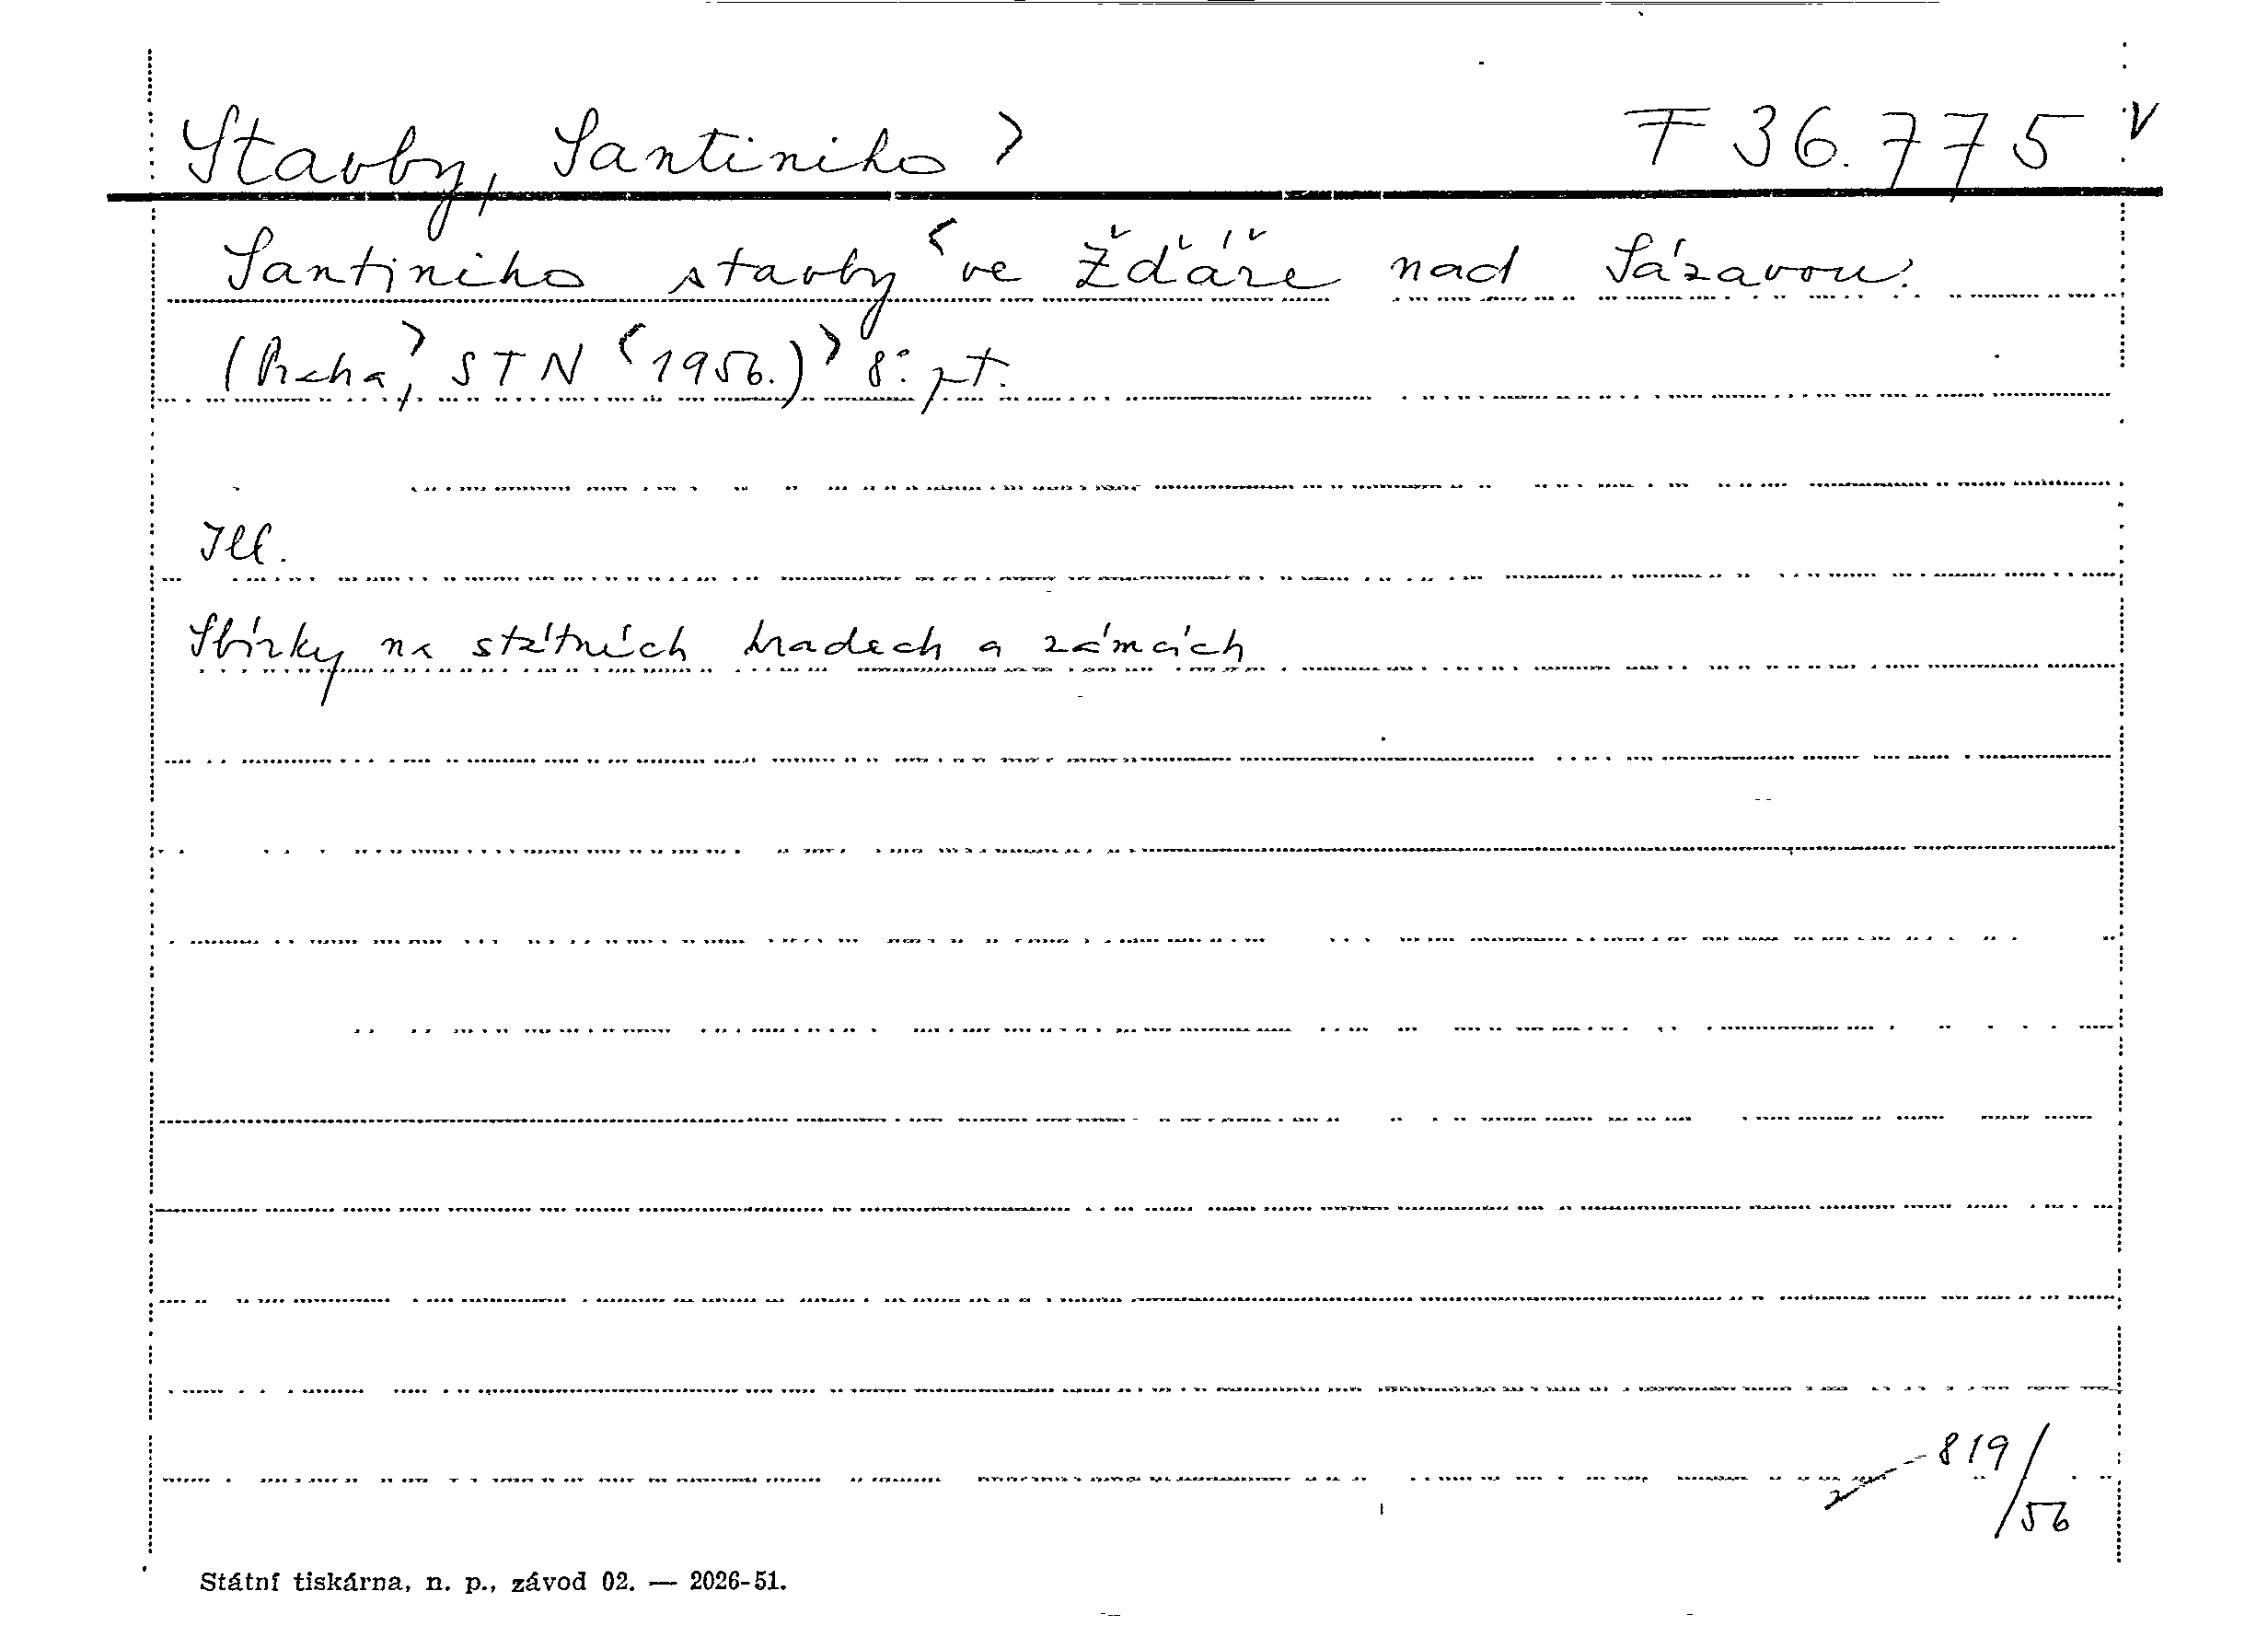 Stavby, Santiniho > F 36.775 v
Santiniho stavby < ve Žďáře nad Sázavou.
(Praha, > STN < 1956.) > 8° pt.
Ill.
Sbírky na státních hradech a zámcích
819/56
Státní tiskárna, n. p., závod 02. — 2026-51.